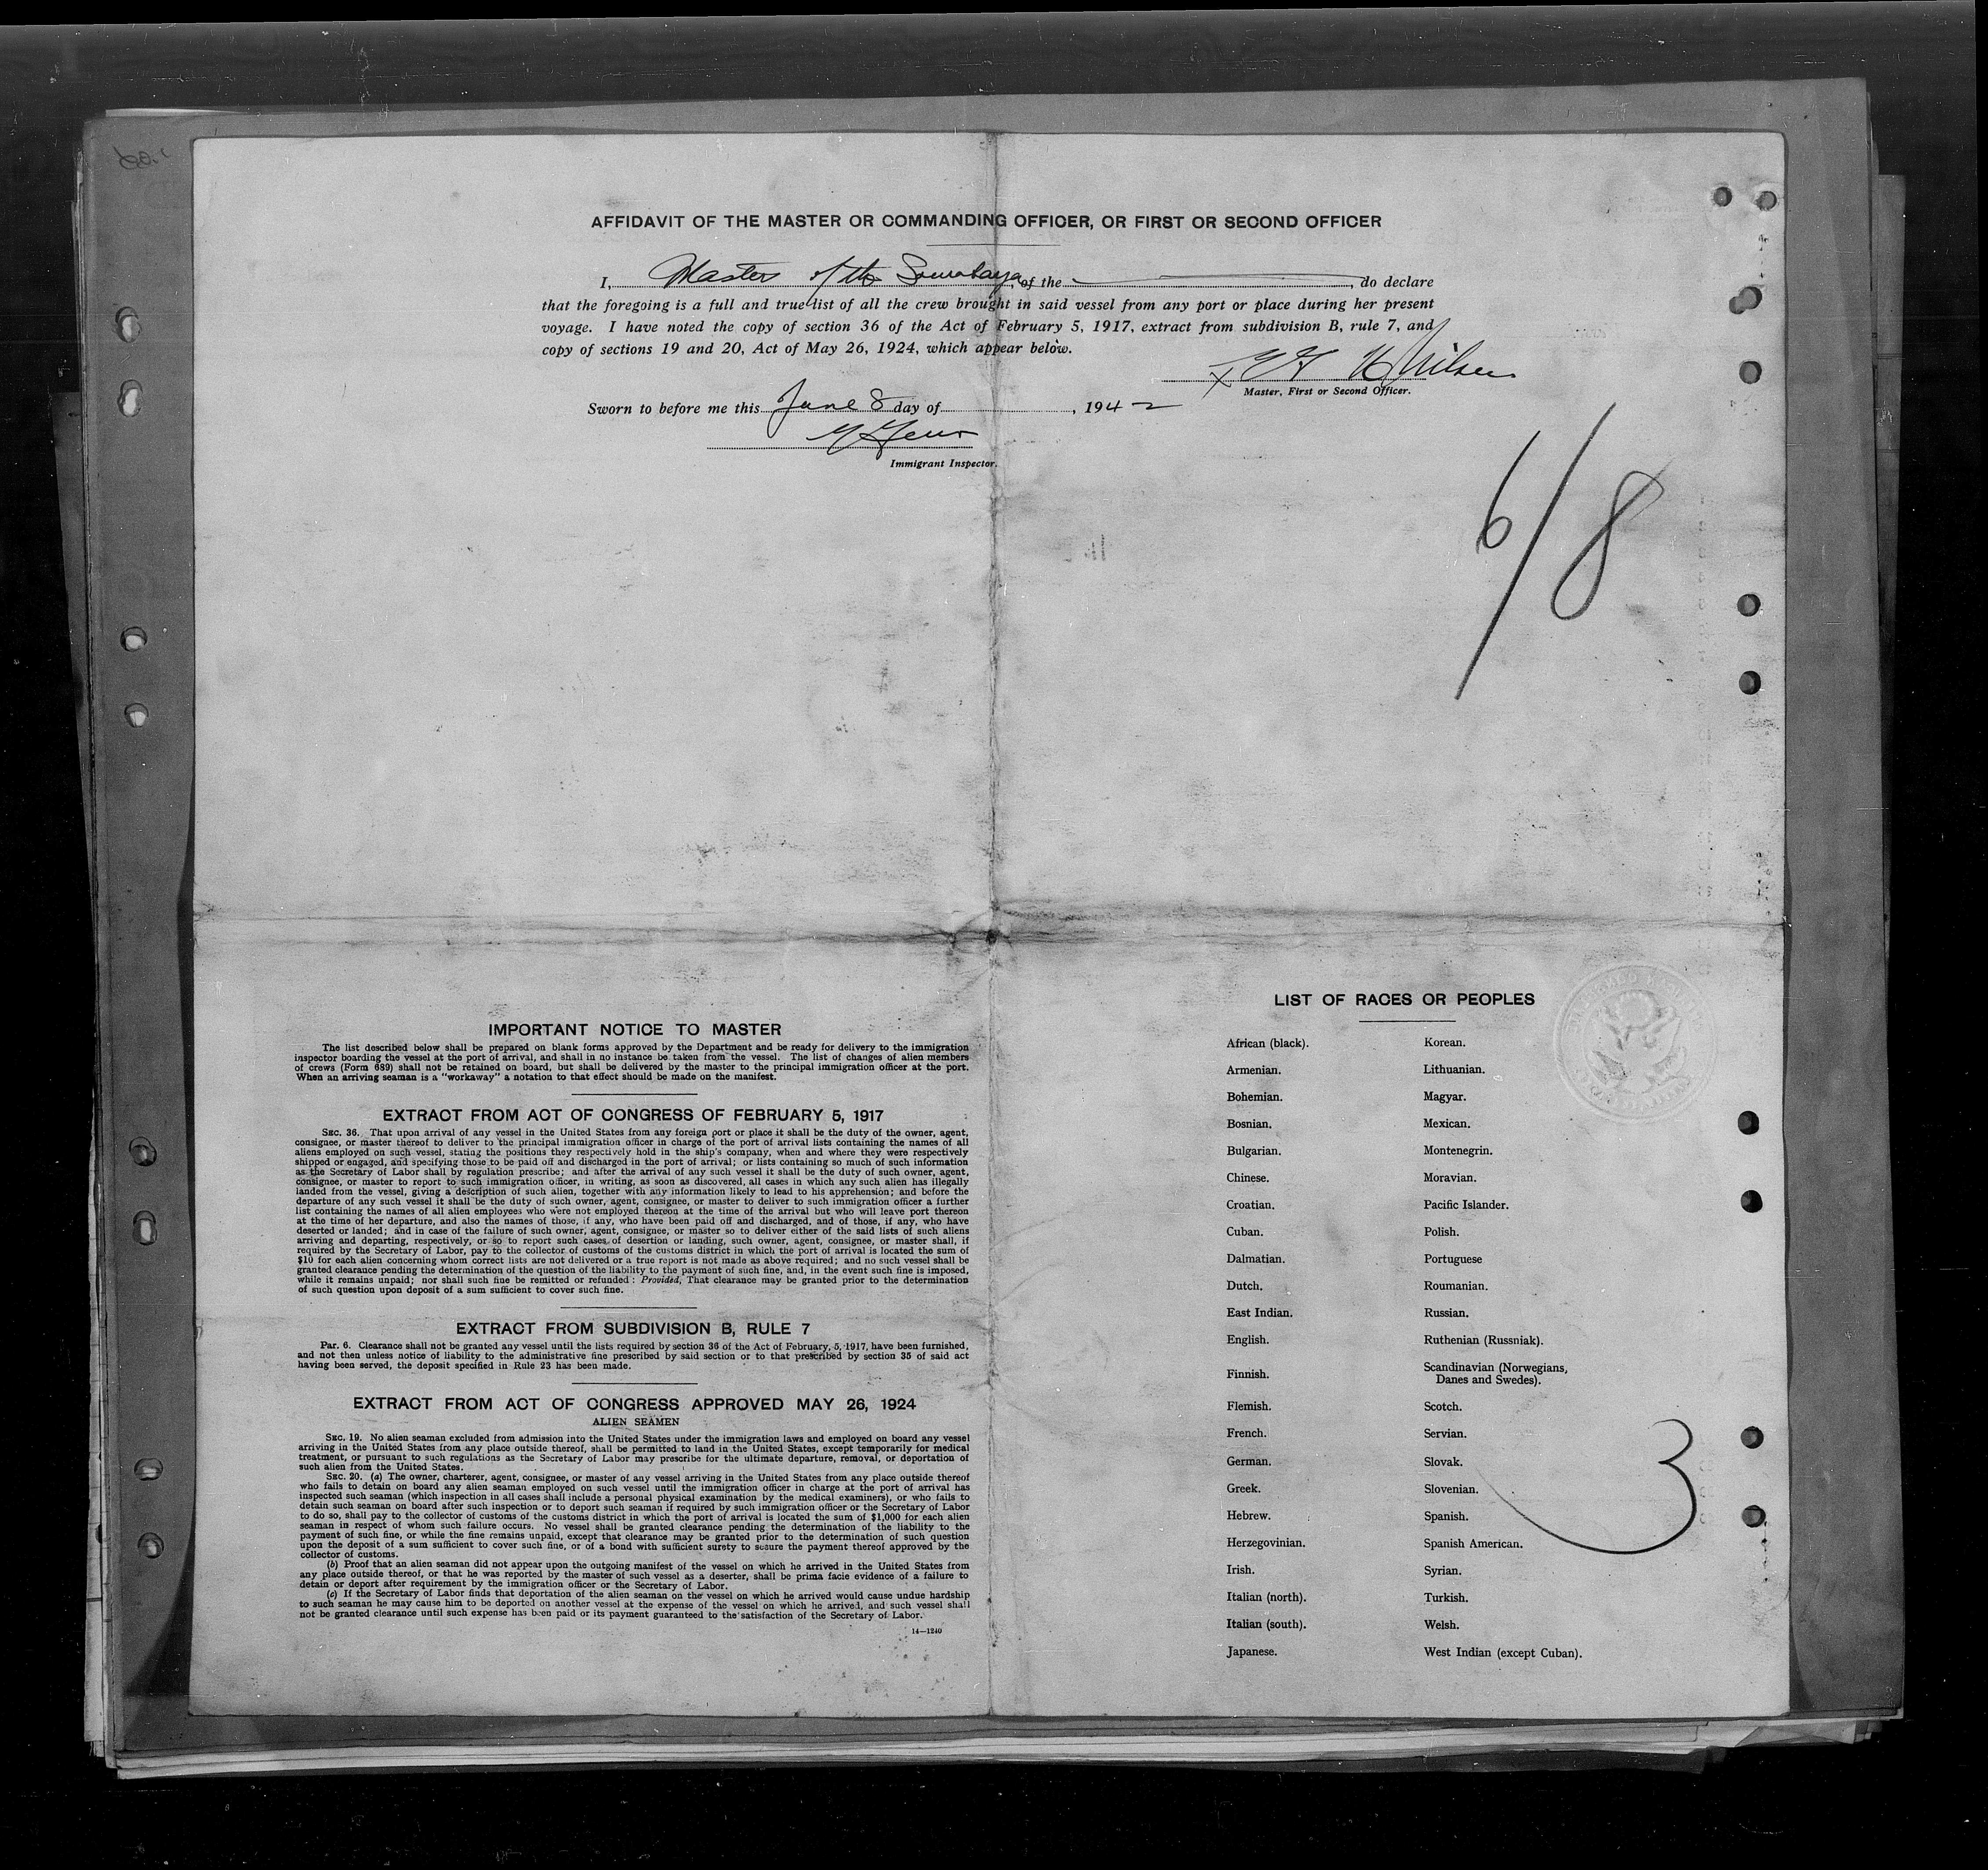 AFFIDAVIT OF THE MASTER OR COMMANDING OFFICER, OR FIRST OR SECOND OFFICER
I, Master of the Sourabaya of the , do declare
that the foregoing is a full and true list of all the crew brought in said vessel from any port or place during her present
voyage. I have noted the copy of section 36 of the Act of February 5, 1917, extract from subdivision B, rule 7, and
copy of sections 19 and 20, Act of May 26, 1924, which appear below.
Master, First or Second Officer.
Sworn to before me this June 8 day of , 1942
Immigrant Inspector.
6/8
IMPORTANT NOTICE TO MASTER
The list described below shall be prepared on blank forms approved by the Department and be ready for delivery to the immigration
inspector boarding the vessel at the port of arrival, and shall in no instance be taken from the vessel. The list of changes of alien members
of crews (Form 689) shall not be retained on board, but shall be delivered by the master to the principal immigration officer at the port.
When an arriving seaman is a "workaway" a notation to that effect should be made on the manifest.
EXTRACT FROM ACT OF CONGRESS OF FEBRUARY 5, 1917
SEC. 36. That upon arrival of any vessel in the United States from any foreign port or place it shall be the duty of the owner, agent,
consignee, or master thereof to deliver to the principal immigration officer in charge of the port of arrival lists containing the names of all
aliens employed on such vessel, stating the positions they respectively hold in the ship's company, when and where they were respectively
shipped or engaged, and specifying those to be paid off and discharged in the port of arrival; or lists containing so much of such information
as the Secretary of Labor shall by regulation prescribe; and after the arrival of any such vessel it shall be the duty of such owner, agent,
consignee, or master to report to such immigration officer, in writing, as soon as discovered, all cases in which any such alien has illegally
landed from the vessel, giving a description of such alien, together with any information likely to lead to his apprehension; and before the
departure of any such vessel it shall be the duty of such owner, agent, consignee, or master to deliver to such immigration officer a further
list containing the names of all alien employees who were not employed thereon at the time of the arrival but who will leave port thereon
at the time of her departure, and also the names of those, if any, who have been paid off and discharged, and of those, if any, who have
deserted or landed; and in case of the failure of such owner, agent, consignee, or master so to deliver either of the said lists of such aliens
arriving and departing, respectively, or so to report such cases of desertion or landing, such owner, agent, consignee, or master shall, if
required by the Secretary of Labor, pay to the collector of customs of the customs district in which the port of arrival is located the sum of
$10 for each alien concerning whom correct lists are not delivered or a true report is not made as above required; and no such vessel shall be
granted clearance pending the determination of the question of the liability to the payment of such fine, and, in the event such fine is imposed,
while it remains unpaid; nor shall such fine be remitted or refunded: Provided, That clearance may be granted prior to the determination
of such question upon deposit of a sum sufficient to cover such fine.
EXTRACT FROM SUBDIVISION B, RULE 7
Par. 6. Clearance shall not be granted any vessel until the lists required by section 36 of the Act of February 5, 1917, have been furnished,
and not then unless notice of liability to the administrative fine prescribed by said section or to that prescribed by section 35 of said act
having been served, the deposit specified in Rule 23 has been made.
EXTRACT FROM ACT OF CONGRESS APPROVED MAY 26, 1924
ALIEN SEAMEN
SEC. 19. No alien seaman excluded from admission into the United States under the immigration laws and employed on board any vessel
arriving in the United States from any place outside thereof, shall be permitted to land in the United States, except temporarily for medical
treatment, or pursuant to such regulations as the Secretary of Labor may prescribe for the ultimate departure, removal, or deportation of
such alien from the United States.
SEC. 20. (a) The owner, charterer, agent, consignee, or master of any vessel arriving in the United States from any place outside thereof
who fails to detain on board any alien seaman employed on such vessel until the immigration officer in charge at the port of arrival has
inspected such seaman (which inspection in all cases shall include a personal physical examination by the medical examiners), or who fails to
detain such seaman on board after such inspection or to deport such seaman if required by such immigration officer or the Secretary of Labor
to do so, shall pay to the collector of customs of the customs district in which the port of arrival is located the sum of $1,000 for each alien
seaman in respect of whom such failure occurs. No vessel shall be granted clearance pending the determination of the liability to the
payment of such fine, or while the fine remains unpaid, except that clearance may be granted prior to the determination of such question
upon the deposit of a sum sufficient to cover such fine, or of a bond with sufficient surety to secure the payment thereof approved by the
collector of customs.
(b) Proof that an alien seaman did not appear upon the outgoing manifest of the vessel on which he arrived in the United States from
any place outside thereof, or that he was reported by the master of such vessel as a deserter, shall be prima facie evidence of a failure to
detain or deport after requirement by the immigration officer or the Secretary of Labor.
(c) If the Secretary of Labor finds that deportation of the alien seaman on the vessel on which he arrived would cause undue hardship
to such seaman he may cause him to be deported on another vessel at the expense of the vessel on which he arrived, and such vessel shall
not be granted clearance until such expense has been paid or its payment guaranteed to the satisfaction of the Secretary of Labor.
14—1240
LIST OF RACES OR PEOPLES
African (black).
Armenian.
Bohemian.
Bosnian.
Bulgarian.
Chinese.
Croatian.
Cuban.
Dalmatian.
Dutch.
East Indian.
English.
Finnish.
Flemish.
French.
German.
Greek.
Hebrew.
Herzegovinian.
Irish.
Italian (north).
Italian (south).
Japanese.
Korean.
Lithuanian.
Magyar.
Mexican.
Montenegrin.
Moravian.
Pacific Islander.
Polish.
Portuguese
Roumanian.
Russian.
Ruthenian (Russniak).
Scandinavian (Norwegians,
Danes and Swedes).
Scotch.
Servian.
Slovak.
Slovenian.
Spanish.
Spanish American.
Syrian.
Turkish.
Welsh.
West Indian (except Cuban).
3